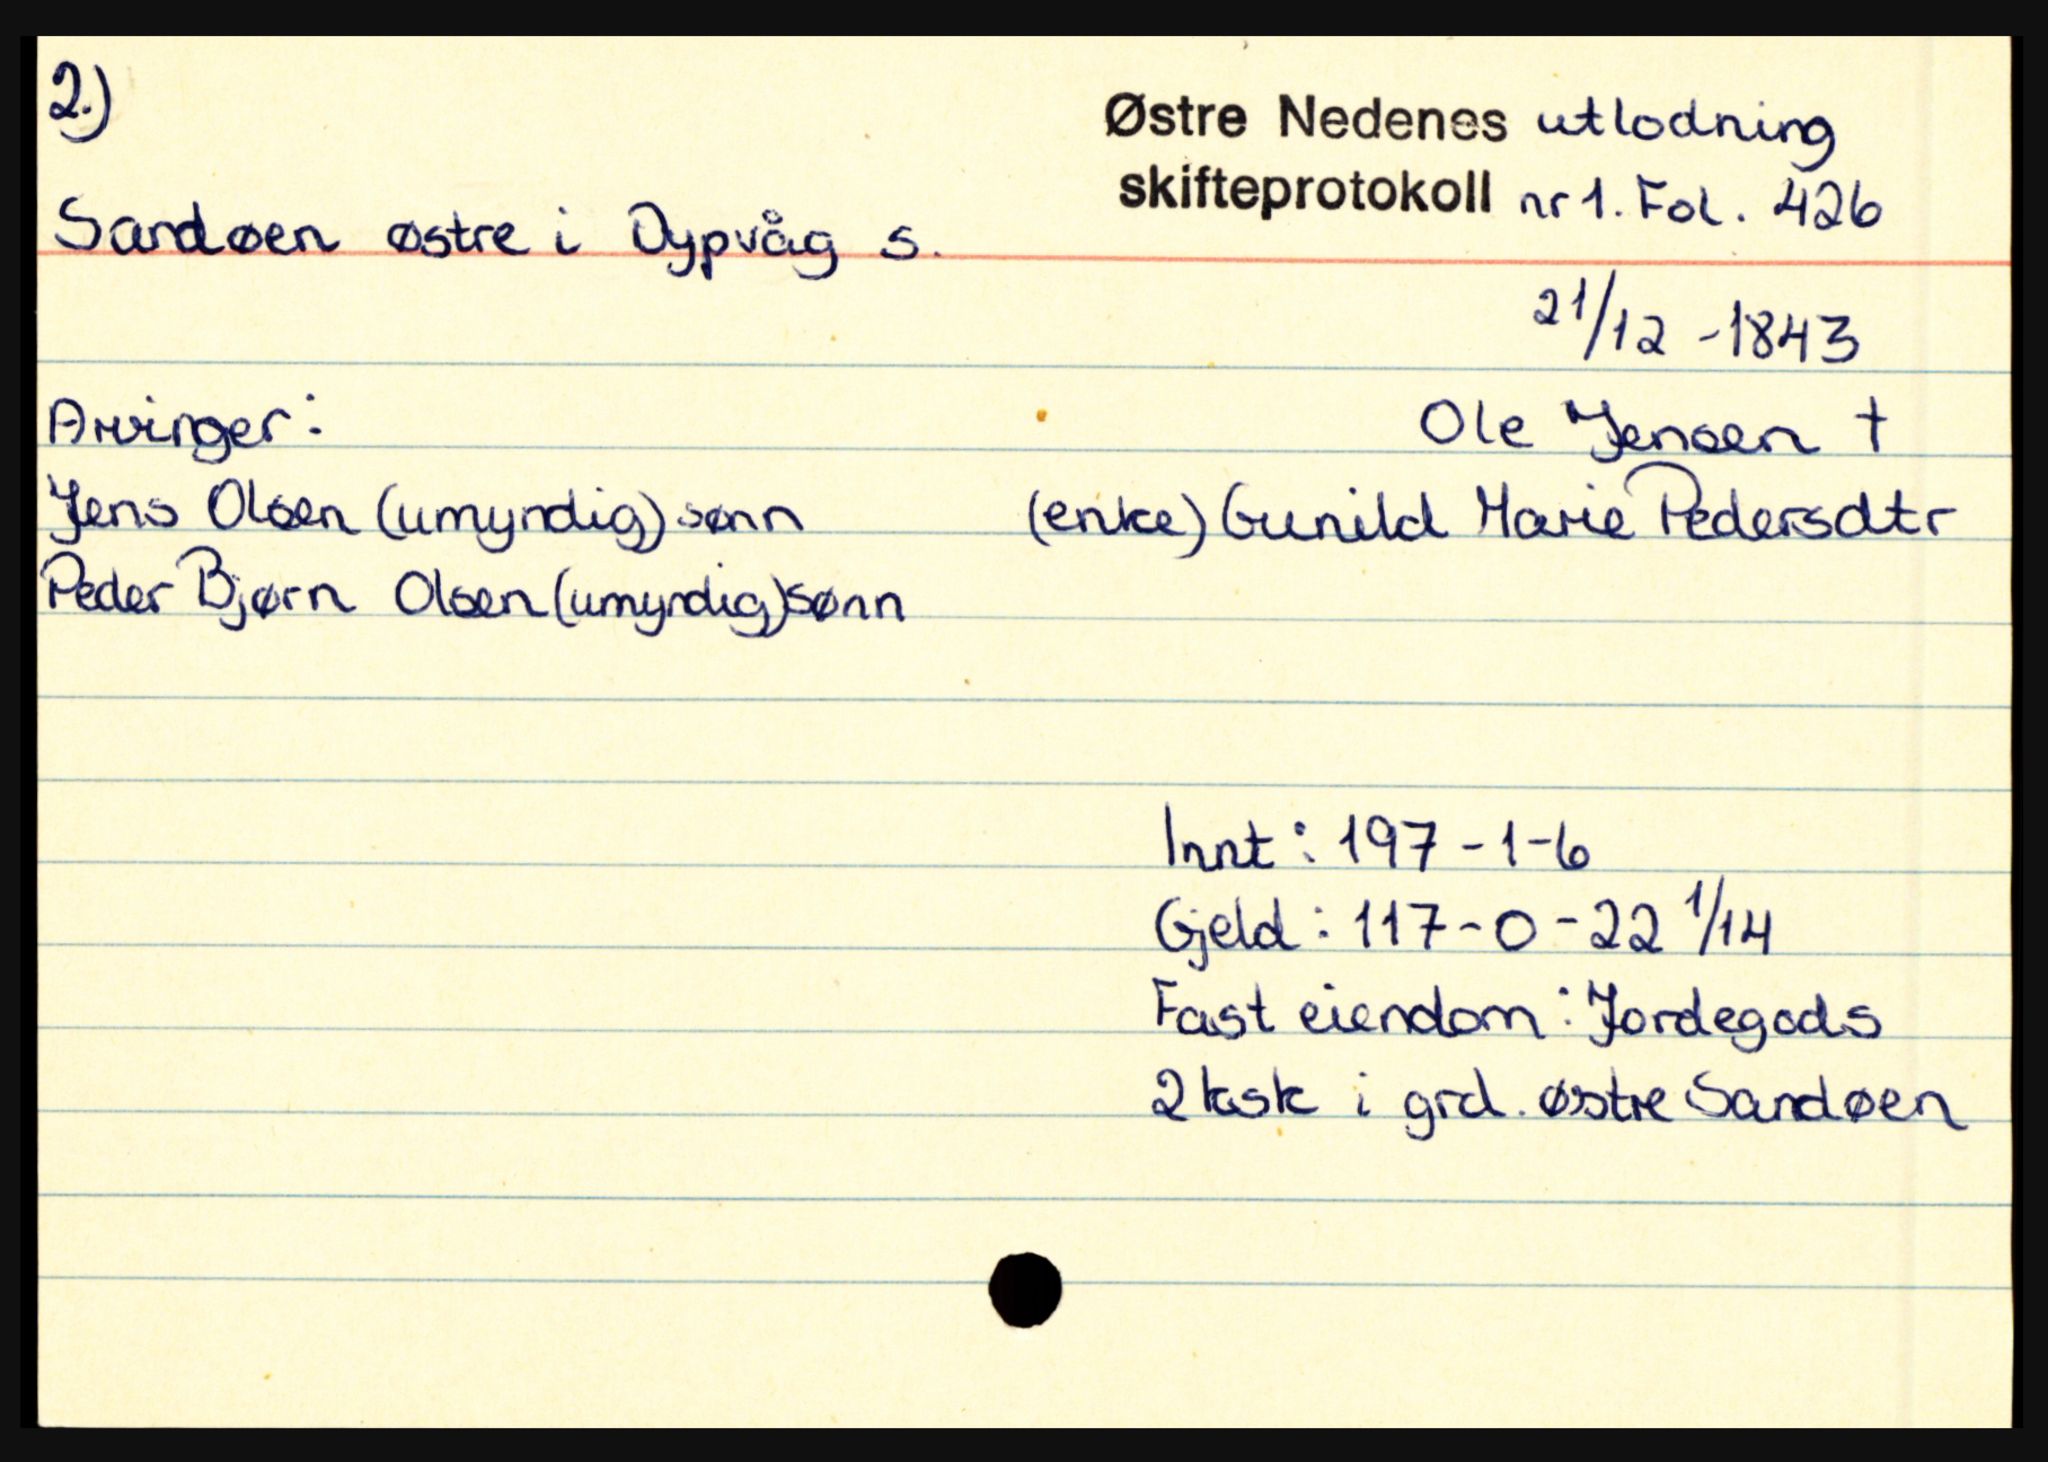 2.)
Østre Nedenes utlodning
skifteprotokoll nr 1. Fol. 426
Sandøen østre i Dypvåg s.
21/12 - 1843
Arvinger:
Ole Jensen †
Jens Olsen (umyndig) sønn
(enke) Gunild Marie Pedersdtr
Peder Bjørn Olsen (umyndig) sønn
Innt: 197 - 1 - 6
Gjeld: 117 - 0 - 22 1/14
Fast eiendom: Jordegods
2 ksk i grd. østre Sandøen